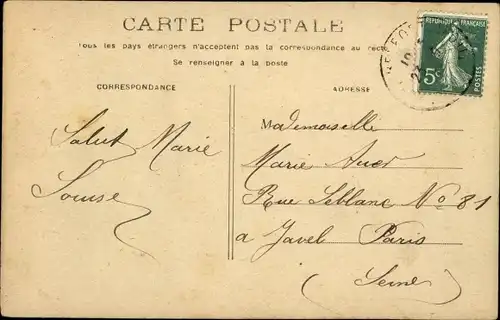 CARTE POSTALE
Tous les pays étrangers n'acceptent pas la correspondance au recto
Se renseigner à la poste
REPUBLIQUE FRANÇAISE
5c
POSTES
CORRESPONDANCE
ADRESSE
Salut Marie
Louise
Mademoiselle
Marie
Rue Leblanc No 81
a Javel Paris
(Seine)